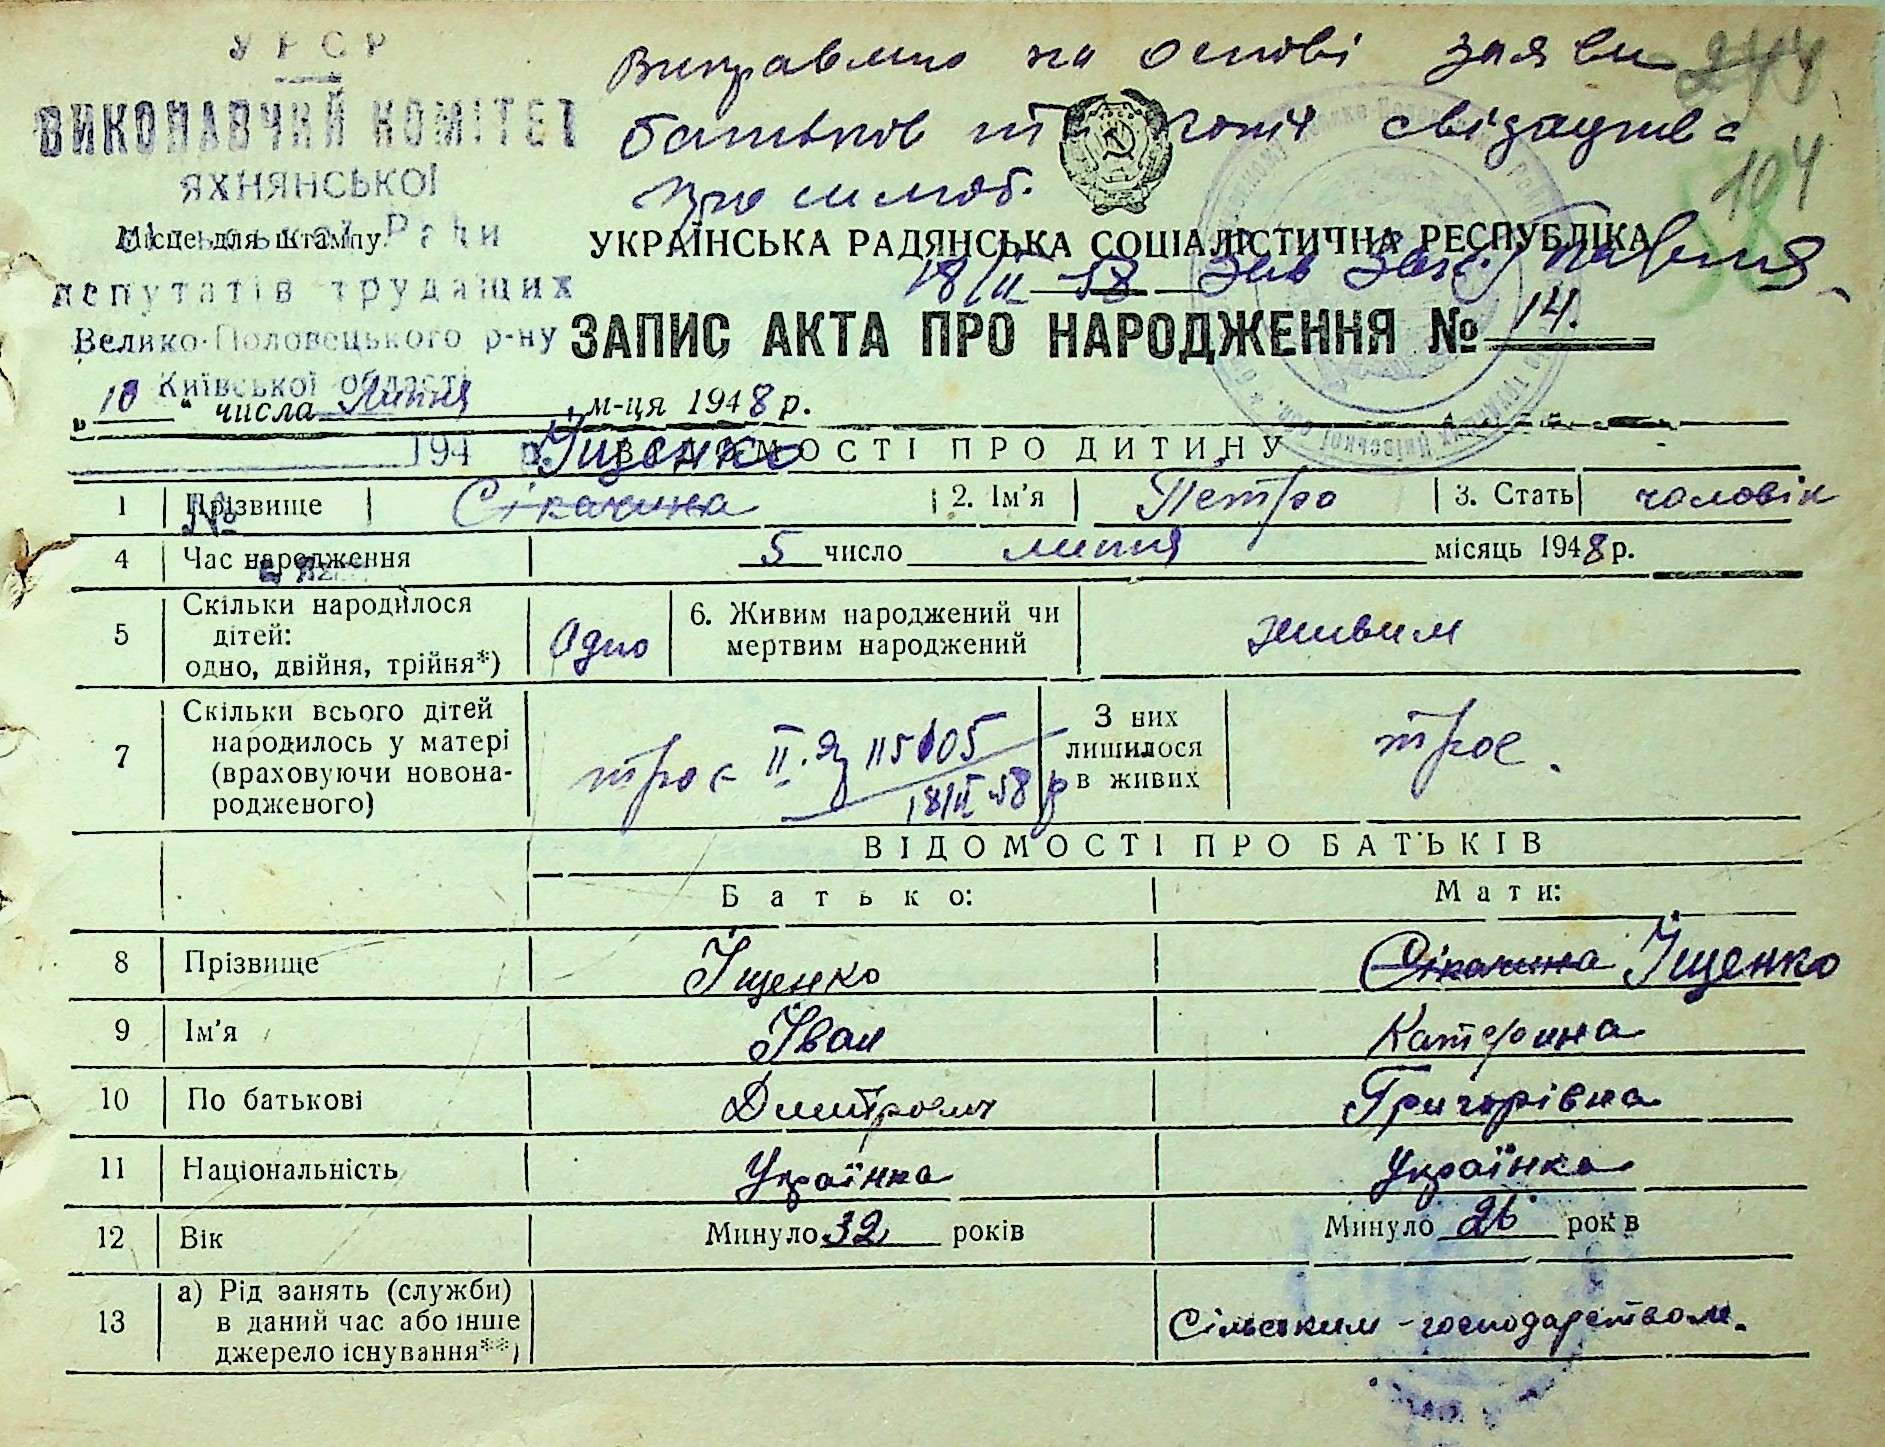 УРСР
ВИКОНАВЧИЙ КОМІТЕТ
ЯХНЯНСЬКОЇ
сільської Ради
депутатів трудящих
Велико-Половецького р-ну
Київської області
194 р.
№
Місце для штампу
Виправлено на основі заяви
батьков та копія свідацтва
про шлюб.
18/II-58 Зав Загс
244
104
58
УКРАЇНСЬКА РАДЯНСЬКА СОЦІАЛІСТИЧНА РЕСПУБЛІКА
ЗАПИС АКТА ПРО НАРОДЖЕННЯ № 14.
„10" числа Липня м-ця 1948 р.
ВІДОМОСТІ ПРО ДИТИНУ
Іщенко
1 Прізвище Сікачина 2. Ім'я Петро 3. Стать чоловік
4 Час народження 5 число липня місяць 1948 р.
5 Скільки народилося дітей: одно, двійня, трійня*) Одно 6. Живим народжений чи мертвим народжений живим
7 Скільки всього дітей народилось у матері (враховуючи новонародженого) троє З них лишилося в живих троє.
18/II-58 р
ВІДОМОСТІ ПРО БАТЬКІВ
Батько: Мати:
8 Прізвище Іщенко Сікачина Іщенко
9 Ім'я Іван Катерина
10 По батькові Дмитрович Григорівна
11 Національність Українка Українка
12 Вік Минуло 32 років Минуло 26 років
13 а) Рід занять (служби) в даний час або інше джерело існування**) Сільським-господарством.